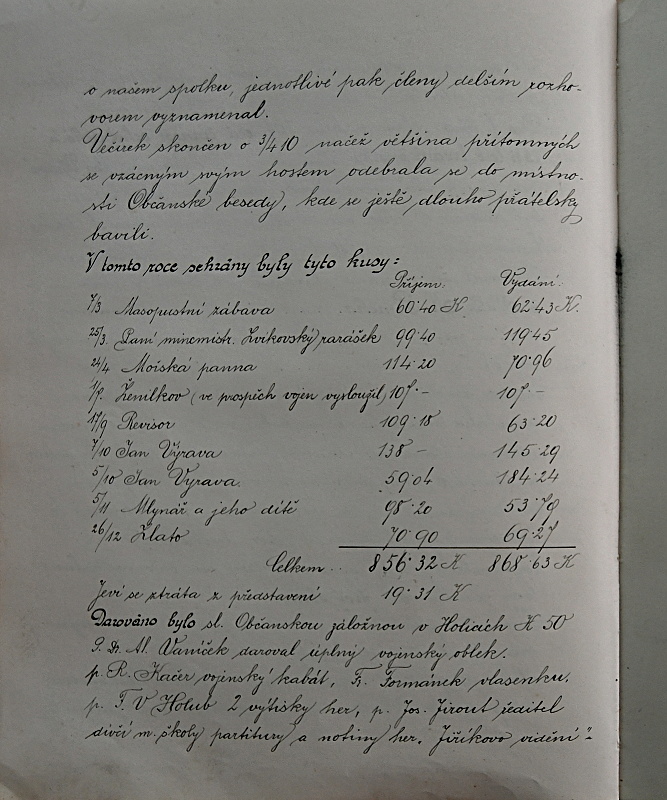 o našem spolku, jednotlivé pak členy delším rozho-
vorem vyznamenal.
Večírek skončen o 3/4 10 načež většina přítomných
se vzácným svým hostem odebrala se do místno-
sti Občanské besedy, kde se ještě dlouho přátelsky
bavili.
V tomto roce sehrány byly tyto kusy:
Příjem: Vydání:
7/3 Masopustní zábava 60·40 K 62·43 K.
25/3. Paní mincmistr. Zvíkovský rarášek 99·40 119·45
24/4 Mořská panna 114·20 70·96
Ženilkov (ve prospěch vojen vysloužil) 107·- 107·-
17/9 Revisor 109·18 63·20
7/10 Jan Výrava 138 - 145·29
5/10 Jan Vyrava. 59·04 184·24
5/11 Mlynář a jeho dítě 98·20 53·79
26/12 Zlato 70·90 69·27
Celkem.. 856·32 K 868·63 K
Jeví se ztráta z představení 19·31 K
Darováno bylo sl. Občanskou záložnou v Holicích K 50
P. Dr. Al. Vaníček daroval úplný vojenský oblek.
p. R. Kačer vojenský kabát, Fr. Formánek vlasenku.
p. F. V Holub 2 výtisky her, p. Jos. Jirout ředitel
dívčí m. školy partitury a notiny her. Jiříkovo vidění"-